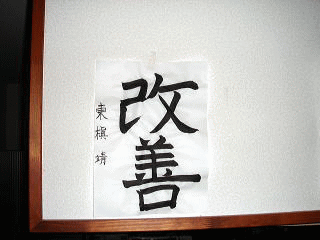 改善
東槇靖